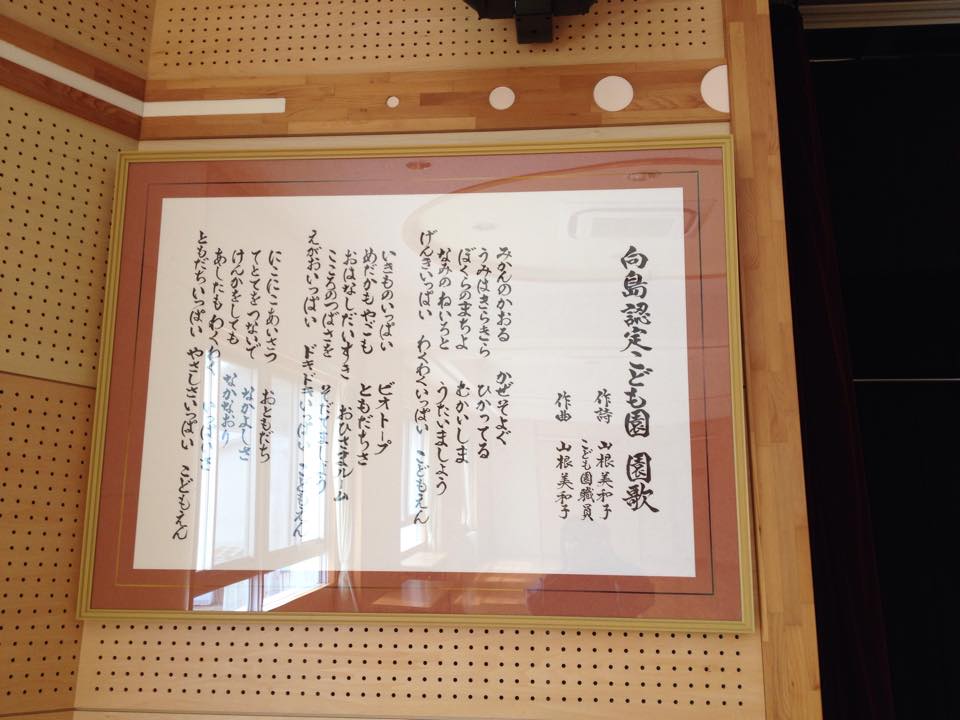 向島認定こども園 園歌
作詩 山根美和子
こども園職員
作曲 山根美和子
みかんのかおる かぜそよぐ
うみはきらきら ひかってる
ぼくらのまちよ むかいしま
なみのねいろと うたいましょう
げんきいっぱい わくわくいっぱい こどもえん
いきものいっぱい ビオトープ
めだかもやごも ともだちさ
おはなしだいすき おひさまルーム
こころのつばさを そだてましょう
えがおいっぱい ドキドキいっぱい こどもえん
にこにこあいさつ おともだち
てとてをつないで なかよしさ
けんかをしても なかなおり
あしたもわくわく いっぱいさ
ともだちいっぱい やさしさいっぱい こどもえん